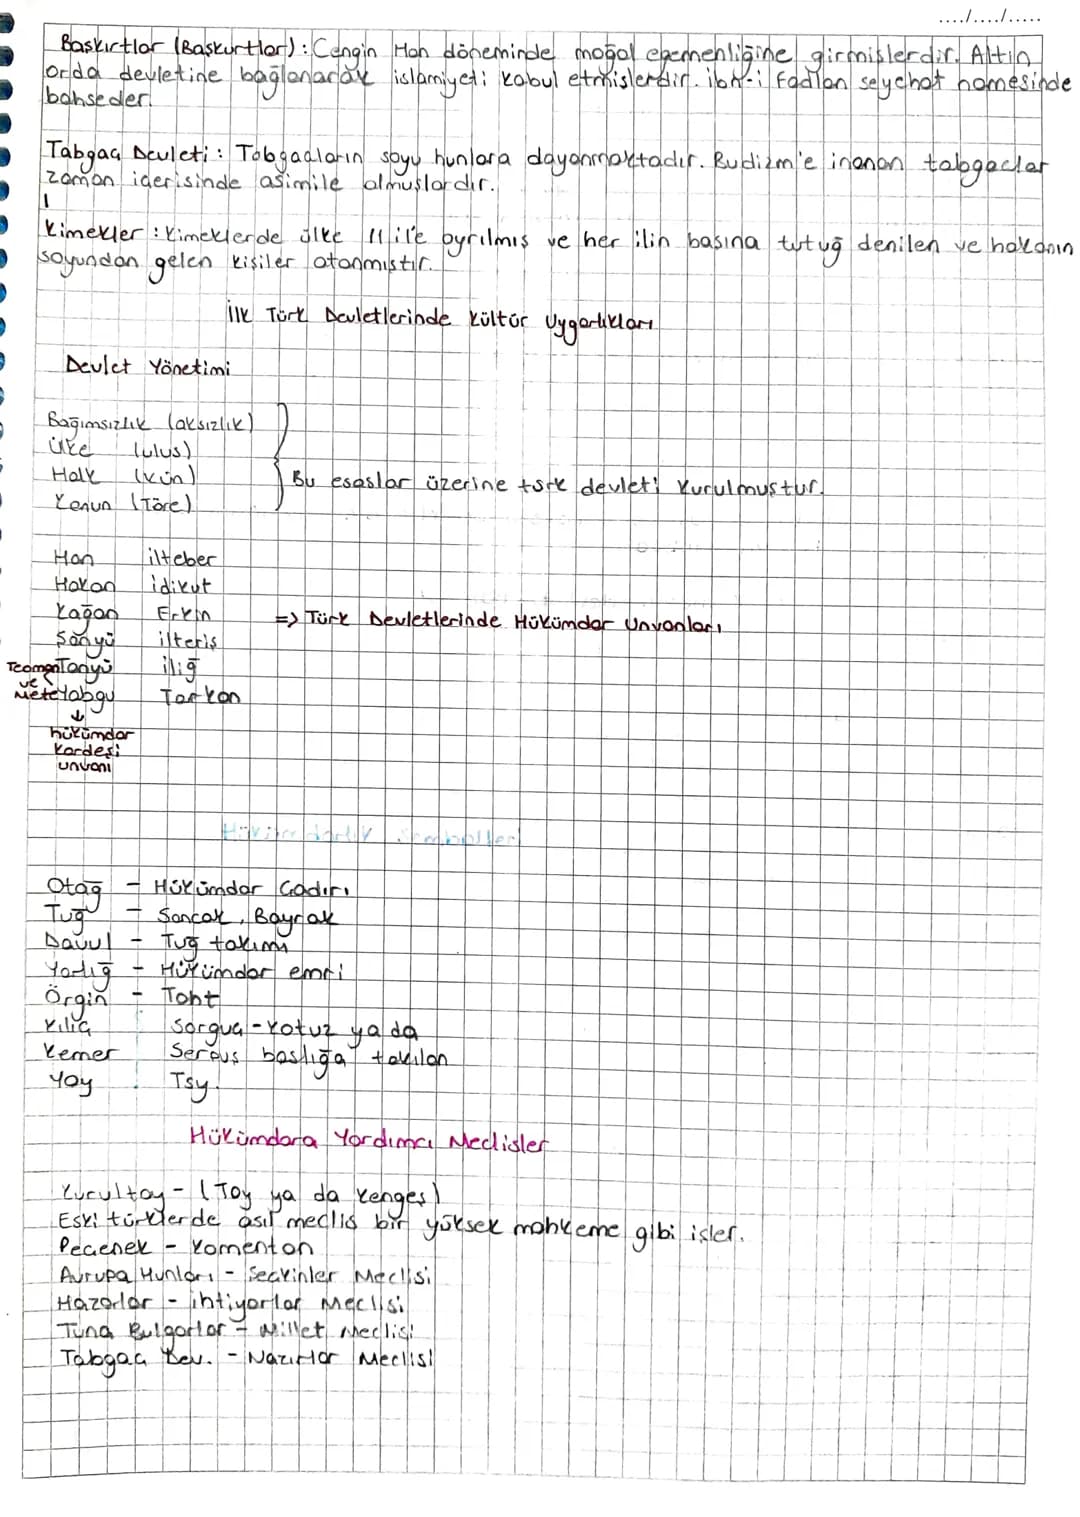 ..../..../.....
Baskırtlar (Başkurtlar) : Cengin Han döneminde moğol egemenliğine girmişlerdir. Altın
orda devletine bağlanarak islamiyeti kabul etmişlerdir. ibn-i Fadlan seyehat namesinde
bahseder.
Tabgaç Devleti : Tabgaçların soyu hunlara dayanmaktadır. Budizm'e inanan tabgaçlar
zaman içerisinde asimile olmuşlardır.
Kimekler : Kimeklerde ülke 11 il'e ayrılmış ve her ilin başına tutuğ denilen ve hakanın
soyundan gelen kişiler atanmıştır.
İlk Türk Devletlerinde Kültür Uygarlıkları
Devlet Yönetimi
Bağımsızlık (aksızlık)
Ülke (ulus)
Halk (Kün)
Bu esaslar üzerine türk devleti kurulmuştur.
Kanun (Töre)
Han ilteber
Hakan idikut
Kağan Erkin => Türk Devletlerinde Hükümdar Unvanları
Şanyü ilteriş
Teoman Tanyü ilig
ve
Mete Yabgu Tarkan
hükümdar
Kardeşi
unvanı
Hükümdarlık Sembolleri
Otağ - Hükümdar Çadırı
Tuğ - Sancak, Bayrak
Davul - Tuğ takımı
Yarlığ - Hükümdar emri
Örgin - Taht
Kılıç Sorguç - Kotuz ya da
Kemer Serpuş başlığa takılan
Yay Tsy.
Hükümdara Yardımcı Meclisler
Kurultay - (Toy ya da Kengeş)
Eski türklerde asıl meclis bir yüksek mahkeme gibi işler.
Peçenek - Komenton
Avrupa Hunları - Seçkinler Meclisi
Hazarlar - ihtiyarlar Meclisi
Tuna Bulgarlar - Millet Meclisi
Tabgaç Dev. - Nazırlar Meclisi